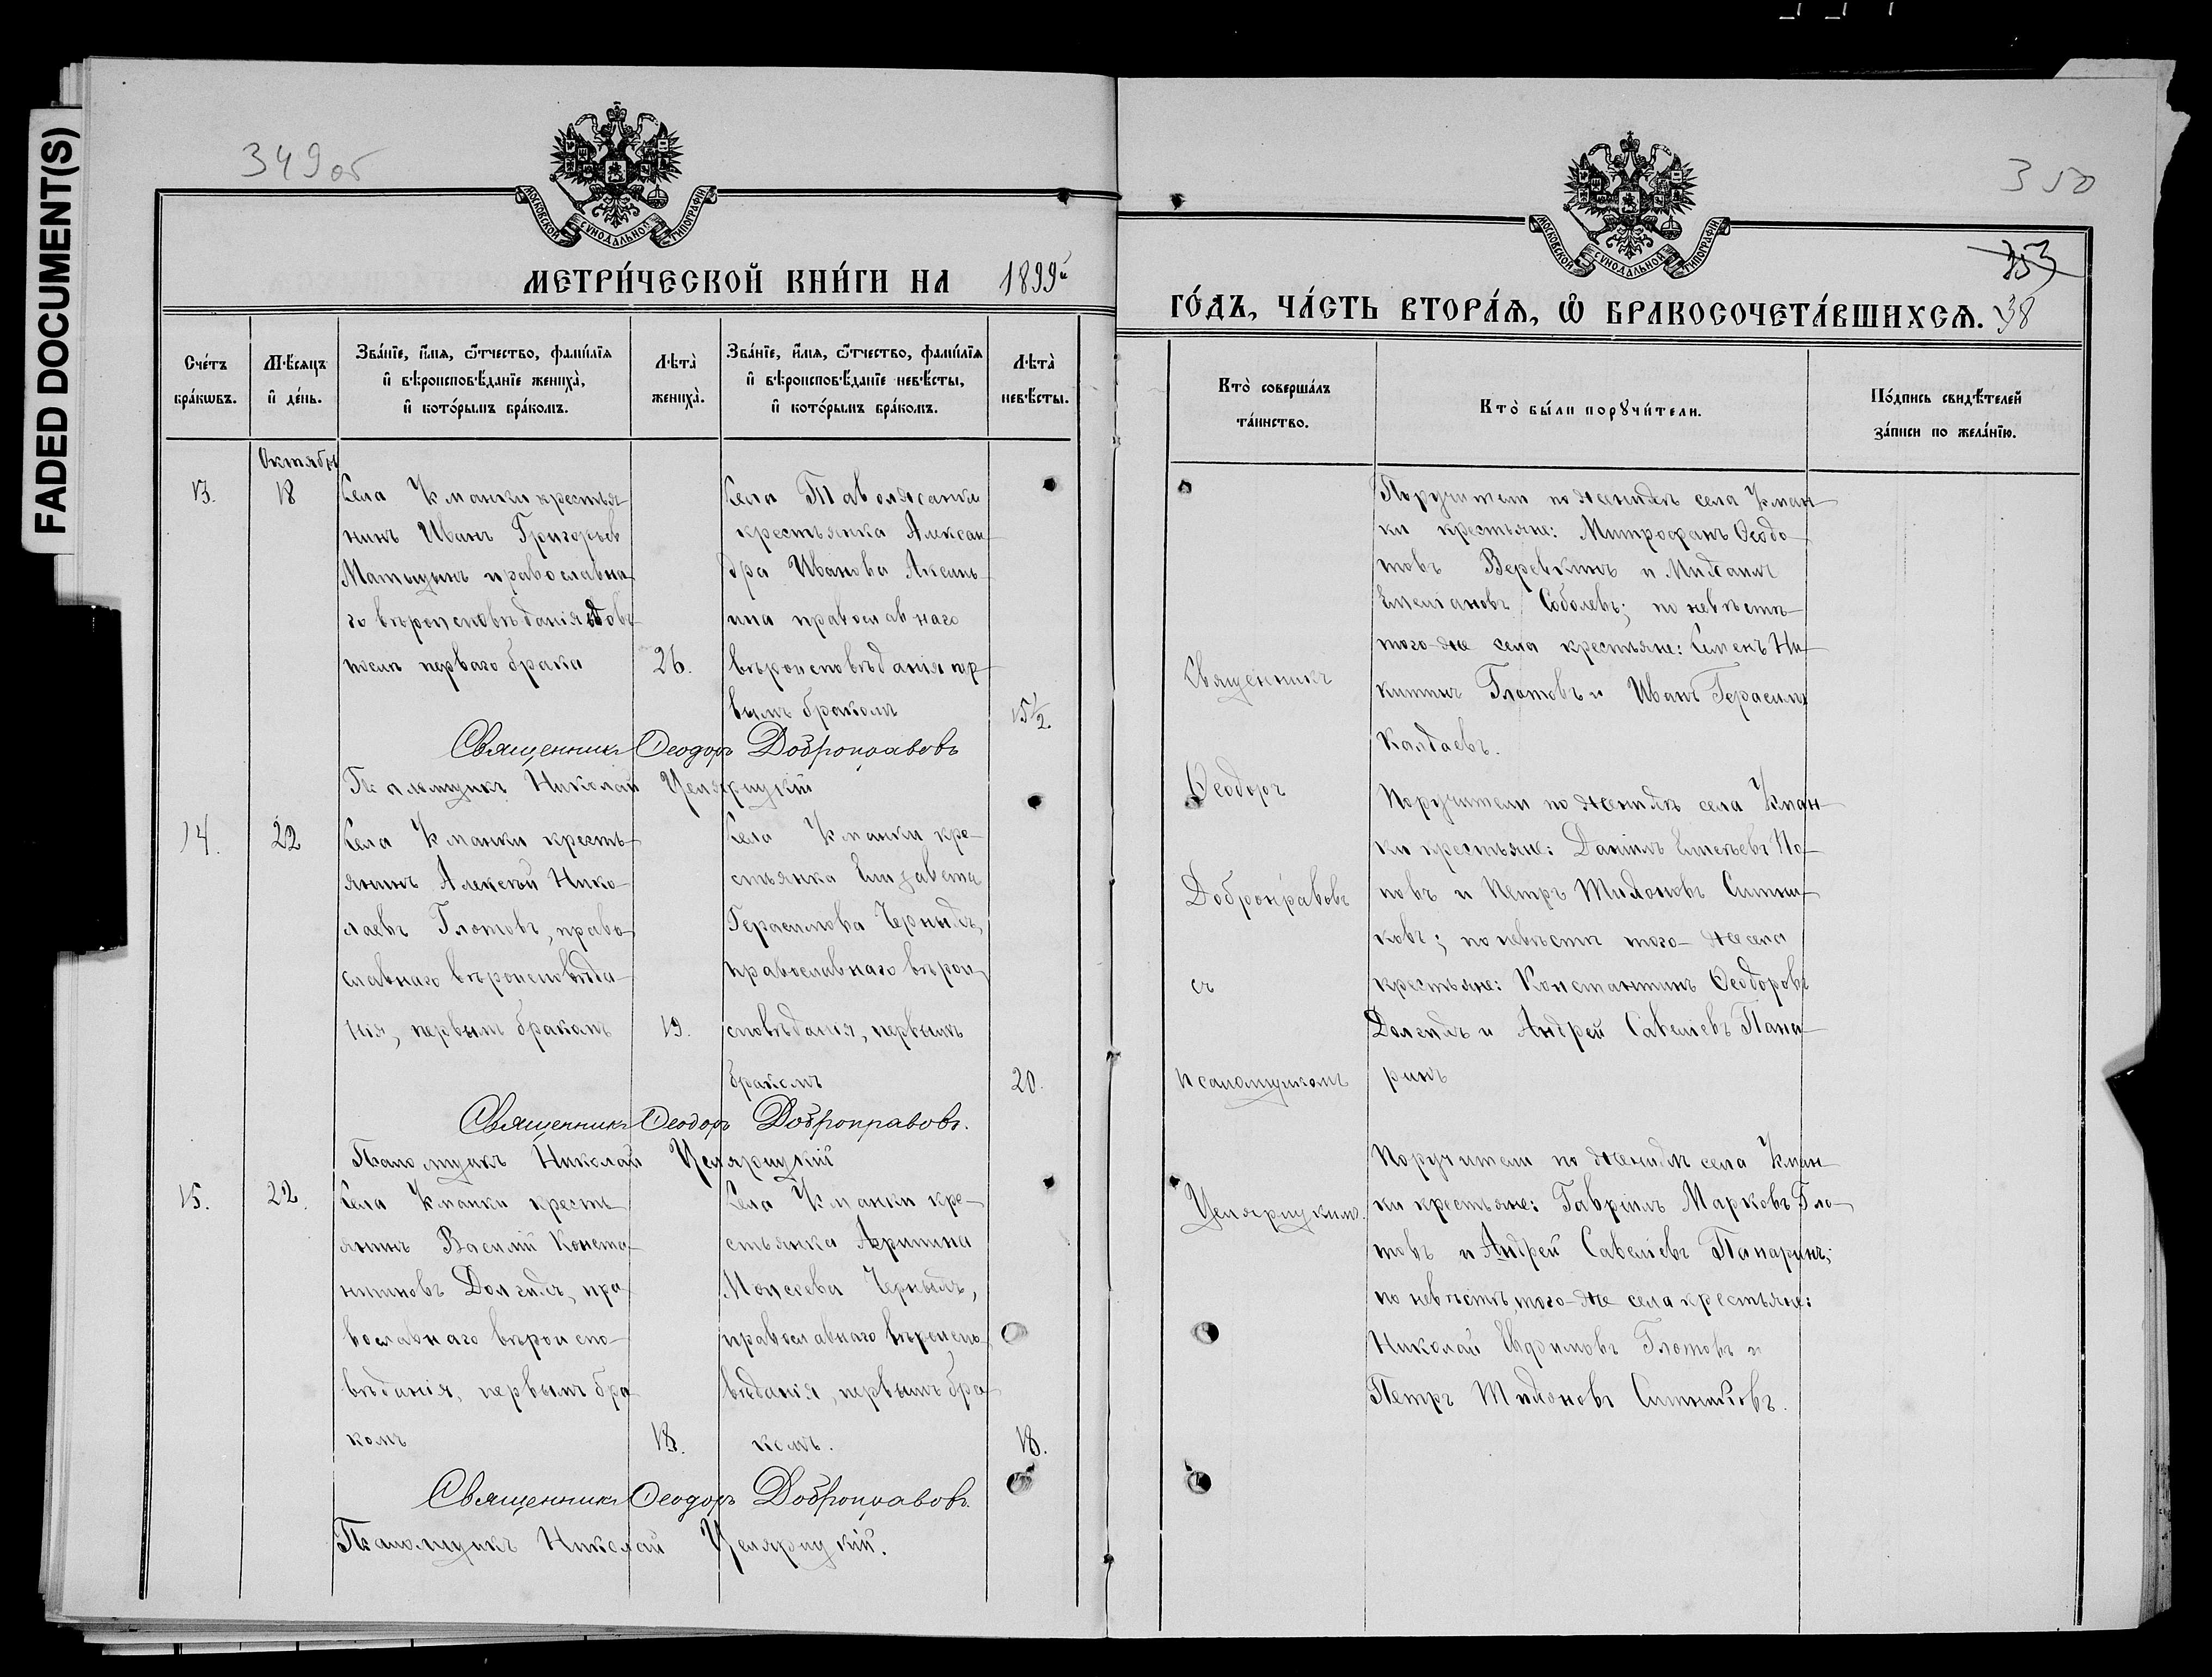 FADED DOCUMENT(S)
349 об
МОСКОВСКОЙ СѴНОДАЛЬНОЙ ТИПОГРАФІИ
МЕТРИ́ЧЕСКОЙ КНИ́ГИ НА 1899й
Сче́тъ бра́кѡвъ.
Мѣ́сяцъ и҆ де́нь.
Зва́нїе, и҆́мѧ, ѻ҆́тчество, фамѝлїѧ
и҆ вѣроисповѣ́данїе жениха̀,
и҆ кото́рымъ бра́комъ.
Лѣ́та жениха̀.
Зва́нїе, и҆́мѧ, ѻ҆́тчество, фамѝлїѧ
и҆ вѣроисповѣ́данїе невѣ́сты,
и҆ кото́рымъ бра́комъ.
Лѣ́та невѣ́сты.
Октябрь
13.
18
Села Усманки крестья
нинъ Иванъ Григорьев
Матыцынъ православна
го вѣроисповѣданія вдовъ
послѣ перваго брака
26.
Села Таволжанки
крестьянка Алексан
дра Иванова Аксинь
ина православнаго
вѣроисповѣданія пер
вымъ бракомъ
15½.
Священникъ Ѳеодоръ Добронравовъ
Псаломщикъ Николай
14.
22
Села Усманки кресть
янинъ Алексѣй Нико
лаевъ Глотовъ, право
славнаго вѣроисповѣда
нія, первымъ бракомъ
19.
Села Усманки кре
стьянка Елизавета
Герасимова Черныхъ,
православнаго вѣрои
сповѣданія, первымъ
бракомъ
20.
Священникъ Ѳеодоръ Добронравовъ.
Псаломщикъ Николай
15.
22.
Села Усманки кресть
янинъ Василій Конста
нтиновъ Долгихъ, пра
вославнаго вѣроиспо
вѣданія, первымъ бра
комъ
18.
Села Усманки кре
стьянка Агрипина
Моисеева Черныхъ,
православнаго вѣроиспо
вѣданія, первымъ бра
комъ.
18.
Священникъ Ѳеодоръ Добронравовъ.
Псаломщикъ Николай
350
353
МОСКОВСКОЙ СѴНОДАЛЬНОЙ ТИПОГРАФІИ
ГО́ДЪ, ЧА́СТЬ ВТОРА́Ѧ, Ѡ҆ БРАКОСОЧЕТА́ВШИХСѦ. 38
Кто̀ соверша́лъ
та́инство.
Кто̀ бы́ли порꙋчи́тели.
По́дпись свидѣ́телей
за́писи по жела́нїю.
Священникъ
Ѳеодоръ
Добронравовъ
съ
псаломщикомъ
Поручители по женихѣ села Усман
ки крестьяне: Митрофанъ Ѳеодо
товъ Веревкинъ и Михаилъ
Емеліановъ Соболевъ; по невѣстѣ
того-же села крестьяне: Семенъ Ни
китинъ Глотовъ и Иванъ Герасим
Колдаевъ.
Поручители по женихѣ села Усман
ки крестьяне: Даніилъ По
повъ и Петръ Тихоновъ Ситни
ковъ; по невѣстѣ того-же села
крестьяне: Константинъ Ѳеодоровъ
Долгихъ и Андрей Савеліевъ Пана
ринъ
Поручители по женихѣ села Усман
ки крестьяне: Гавріилъ Марковъ Гло
товъ и Андрей Савеліевъ Панаринъ;
по невѣстѣ того-же села крестьяне:
Николай Евфимовъ Глотовъ и
Петръ Тихоновъ Ситниковъ.